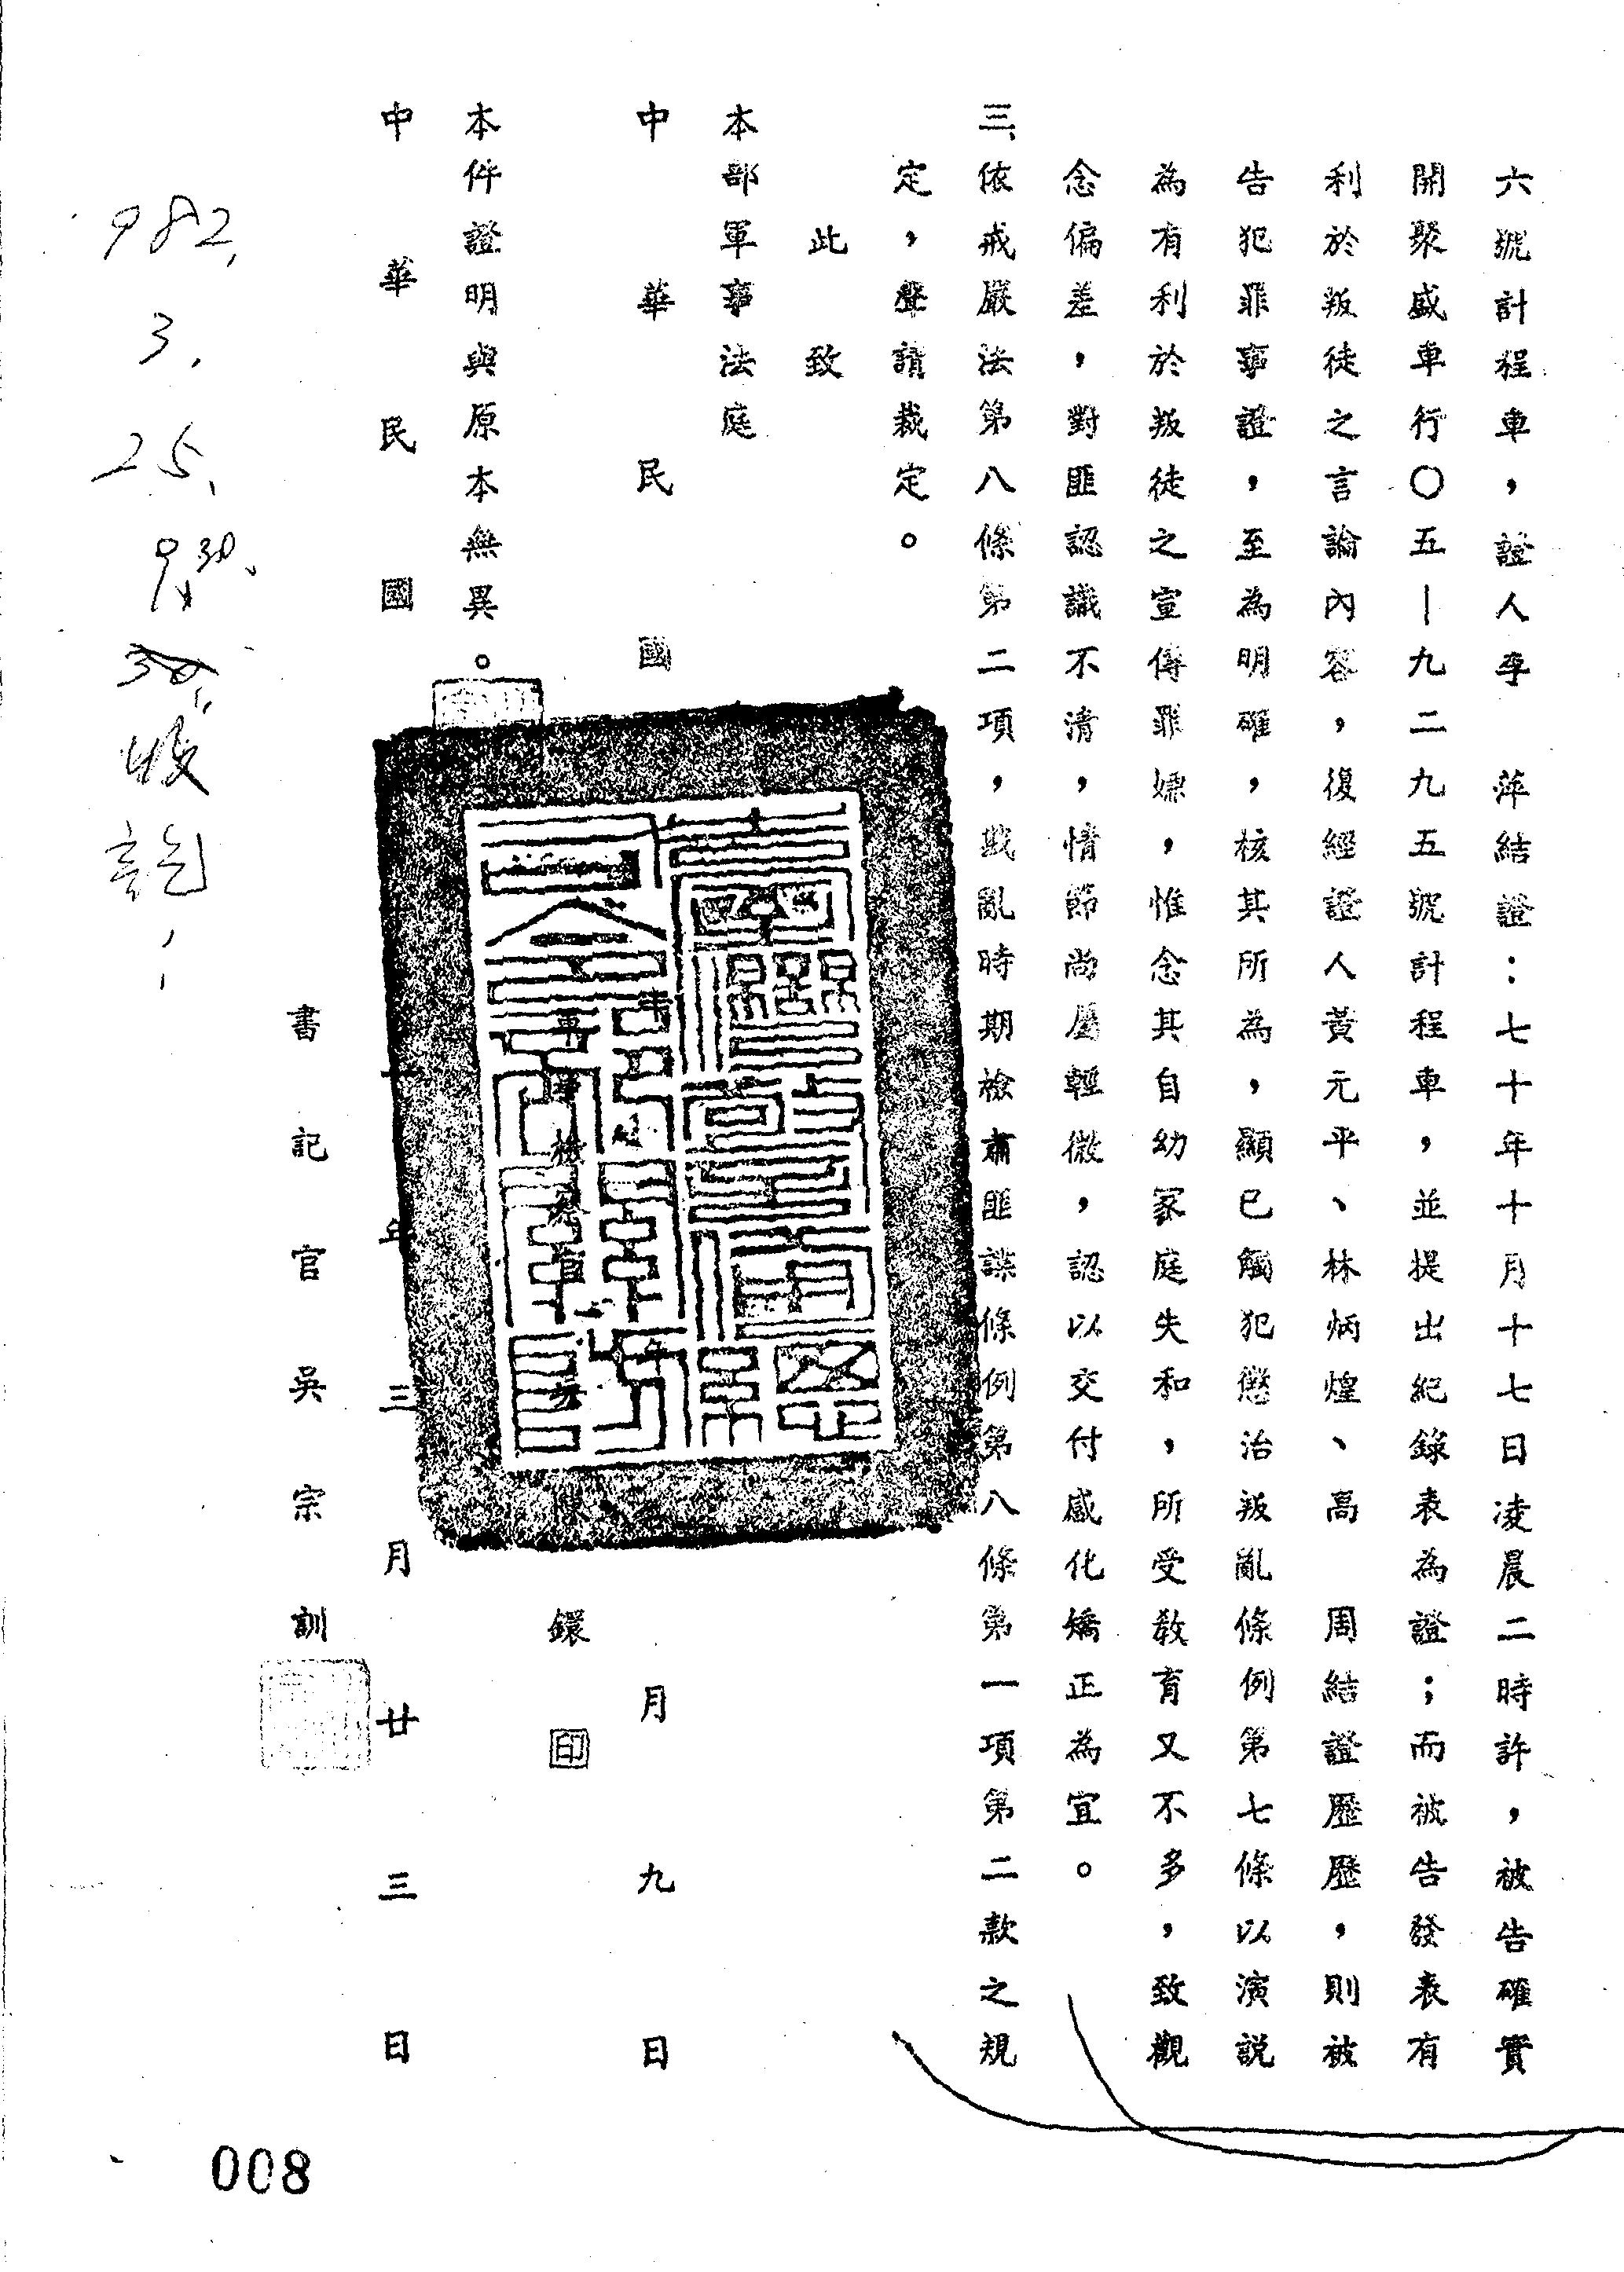 六號計程車，證人李　萍結證：七十年十月十七日凌晨二時許，被告確實
開聚盛車行〇五—九二九五號計程車，並提出紀錄表為證；而被告發表有
利於叛徒之言論內容，復經證人黃元平、林炳煌、高　周結證歷歷，則被
告犯罪事證，至為明確，核其所為，顯已觸犯懲治叛亂條例第七條以演說
為有利於叛徒之宣傳罪嫌，惟念其自幼家庭失和，所受教育又不多，致觀
念偏差，對匪認識不清，情節尚屬輕微，認以交付感化矯正為宜。
三、依戒嚴法第八條第二項，戡亂時期檢肅匪諜條例第八條第一項第二款之規
定，聲請裁定。
此致
本部軍事法庭
中華民國　月九日
軍事檢察官　陳鐶　印
本件證明與原本無異。
中華民國　年三月廿三日
書記官吳宗訓
982.
3.
25.
008